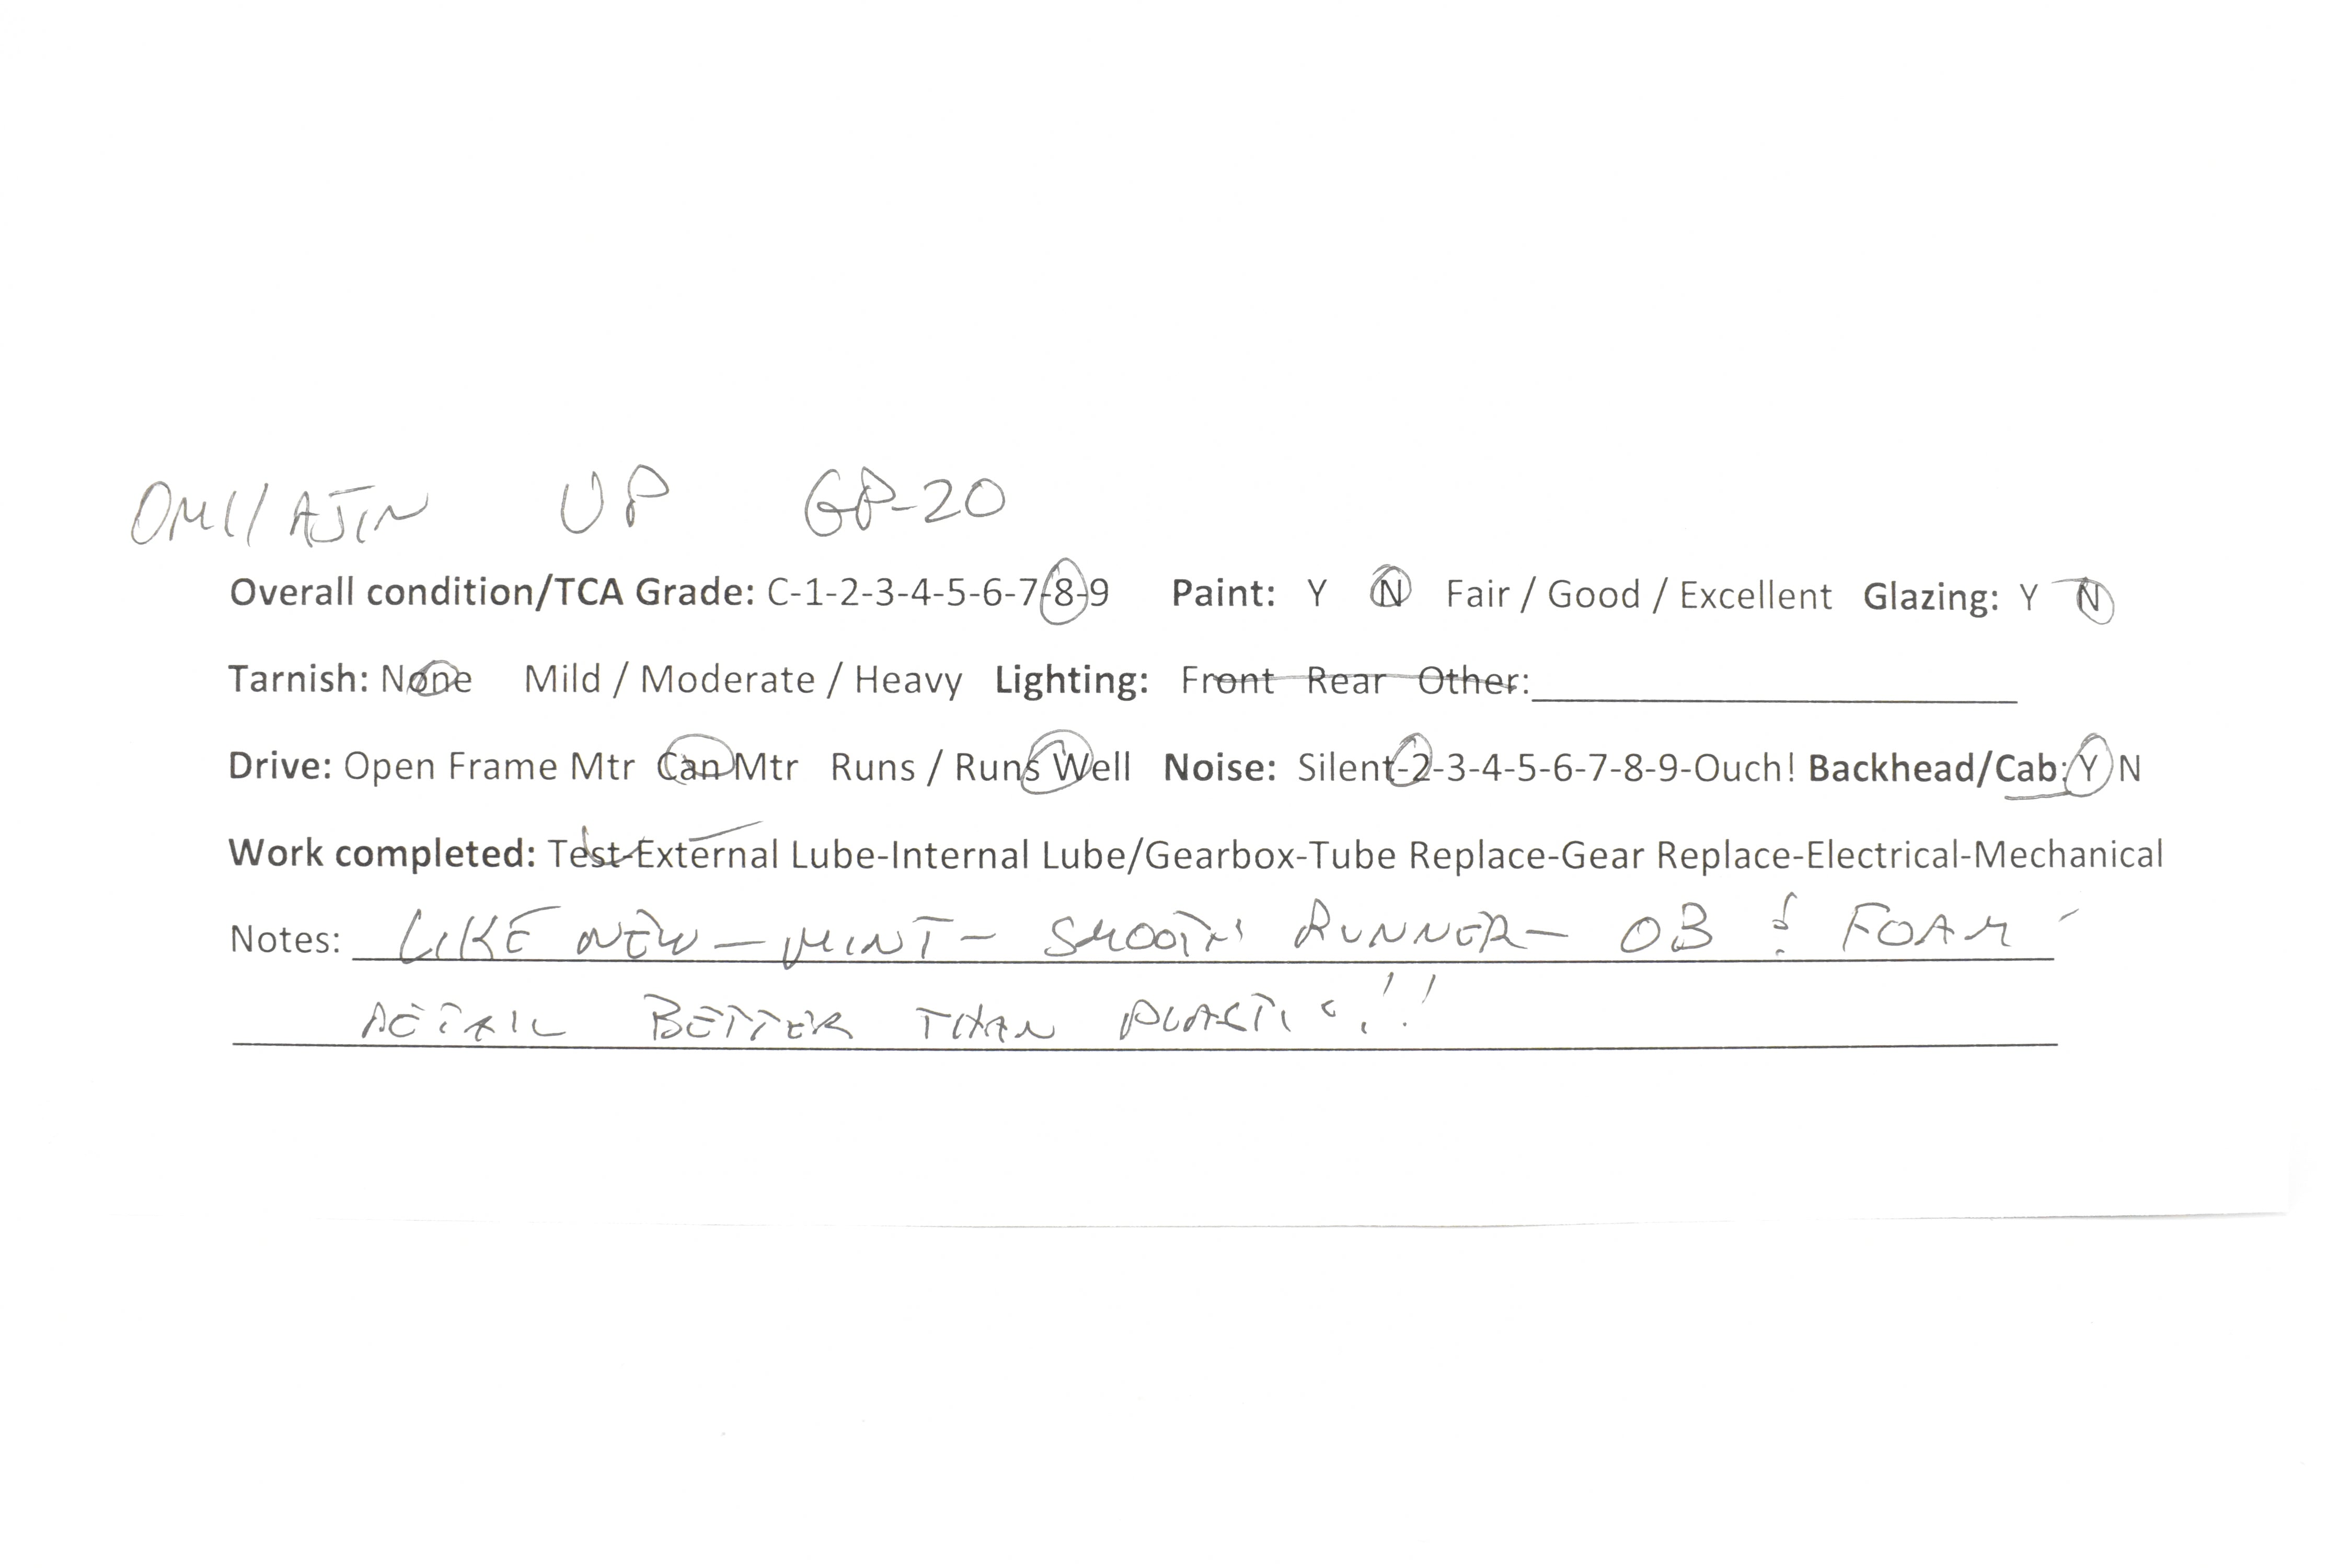 OMI/AJIN UP GP-20
Overall condition/TCA Grade: C-1-2-3-4-5-6-7-8-9 Paint: Y N Fair / Good / Excellent Glazing: Y N
Tarnish: None Mild / Moderate / Heavy Lighting: Front Rear Other:
Drive: Open Frame Mtr Can Mtr Runs / Runs Well Noise: Silent-2-3-4-5-6-7-8-9-Ouch! Backhead/Cab: Y N
Work completed: Test-External Lube-Internal Lube/Gearbox-Tube Replace-Gear Replace-Electrical-Mechanical
Notes: LIKE NEW - MINT - SMOOTH RUNNER - OB & FOAM -
DETAIL BETTER THAN PLASTIC!!